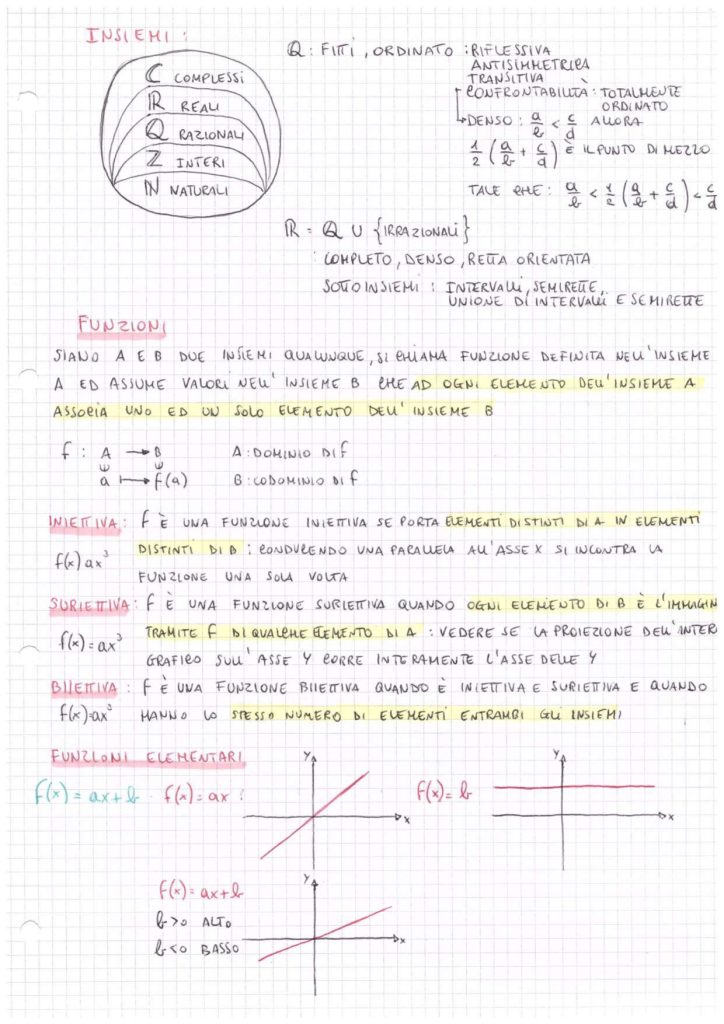 INSIEMI:
C COMPLESSI
R REALI
Q RAZIONALI
Z INTERI
N NATURALI
Q: FITTI, ORDINATO: RIFLESSIVA
ANTISIMMETRICA
TRANSITIVA
CONFRONTABILITÀ: TOTALMENTE
ORDINATO
DENSO: a/b < c/d ALLORA
1/2 (a/b + c/d) È IL PUNTO DI MEZZO
TALE CHE: a/b < 1/2 (a/b + c/d) < c/d
R = Q ∪ {IRRAZIONALI}
: COMPLETO, DENSO, RETTA ORIENTATA
SOTTOINSIEMI: INTERVALLI, SEMIRETTE,
UNIONE DI INTERVALLI E SEMIRETTE
FUNZIONI
SIANO A E B DUE INSIEMI QUALUNQUE, SI CHIAMA FUNZIONE DEFINITA NELL'INSIEME
A ED ASSUME VALORI NELL'INSIEME B CHE AD OGNI ELEMENTO DELL'INSIEME A
ASSOCIA UNO ED UN SOLO ELEMENTO DELL'INSIEME B
f: A → B A: DOMINIO DI f
a ↦ f(a) B: CODOMINIO DI f
INIETTIVA: f È UNA FUNZIONE INIETTIVA SE PORTA ELEMENTI DISTINTI DI A IN ELEMENTI
f(x) ax³ DISTINTI DI B: CONDUCENDO UNA PARALLELA ALL'ASSE X SI INCONTRA LA
FUNZIONE UNA SOLA VOLTA
SURIETTIVA: f È UNA FUNZIONE SURIETTIVA QUANDO OGNI ELEMENTO DI B È L'IMMAGIN
f(x)=ax³ TRAMITE f DI QUALCHE ELEMENTO DI A: VEDERE SE LA PROIEZIONE DELL'INTER
GRAFICO SULL'ASSE Y CORRE INTERAMENTE L'ASSE DELLE Y
BIIETTIVA: f È UNA FUNZIONE BIIETTIVA QUANDO È INIETTIVA E SURIETTIVA E QUANDO
f(x)=ax³ HANNO LO STESSO NUMERO DI ELEMENTI ENTRAMBI GLI INSIEMI
FUNZIONI ELEMENTARI
f(x) = ax+b · f(x) = ax :
y
x
f(x) = b
y
x
f(x) = ax+b
b>0 ALTO
b<0 BASSO
y
x